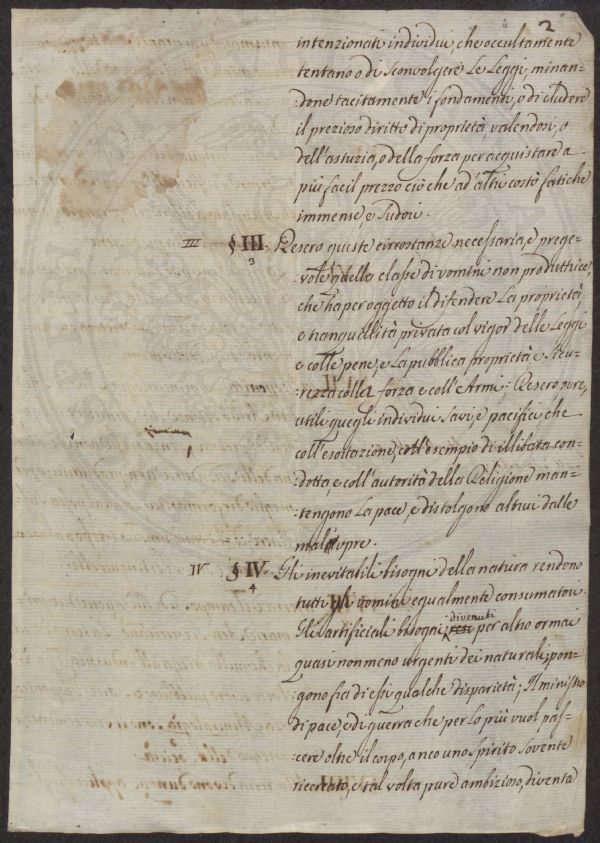 2
intenzionati individui, che occultamente
tentano o di sconvolgere le Leggi, minan=
=done tacitamente i fondamenti, o di eludere
il prezioso diritto di proprietà valendosi, o
dell'astuzia, o della forza per acquistare a
più facil prezzo ciò che ad altri costò fatiche
immense, e sudori.
III § III. Resero queste circostanze necessaria, e prege=
3
=vole quella classe di uomini non produttrice,
che ha per oggetto il difendere la proprietà,
e tranquillità privata col vigor delle Leggi
e colle pene, e la pubblica proprietà e sicu=
=rezza colla forza e coll'Armi; Resero pure,
utili quegli individui savi, e pacifici che
coll'esortazione, coll'esempio di illibata con=
=dotta, e coll'autorità della Religione man=
=tengono la pace, e distolgono altrui dalle
mal'opre.
IV § IV. Gli inevitabili bisogni della natura rendono
4
tutti gli uomini egualmente consumatori.
divenuti
Gli artificiali bisogni, resi per altro ormai
quasi nonmeno urgenti dei naturali; pon=
=gono fra di essi qualche disparietà; Il ministro
di pace, e di guerra che per lo più vuol pas=
=cere oltre il corpo, anco uno spirito sovente
ricreato, e tal volta pure ambizioso, diventa